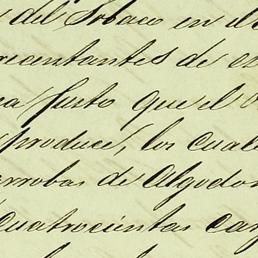 del Tabaco en el
recientantes de ca
Justo que el
produce, los cual
arrobas de Algodon
Cuatrocientas car